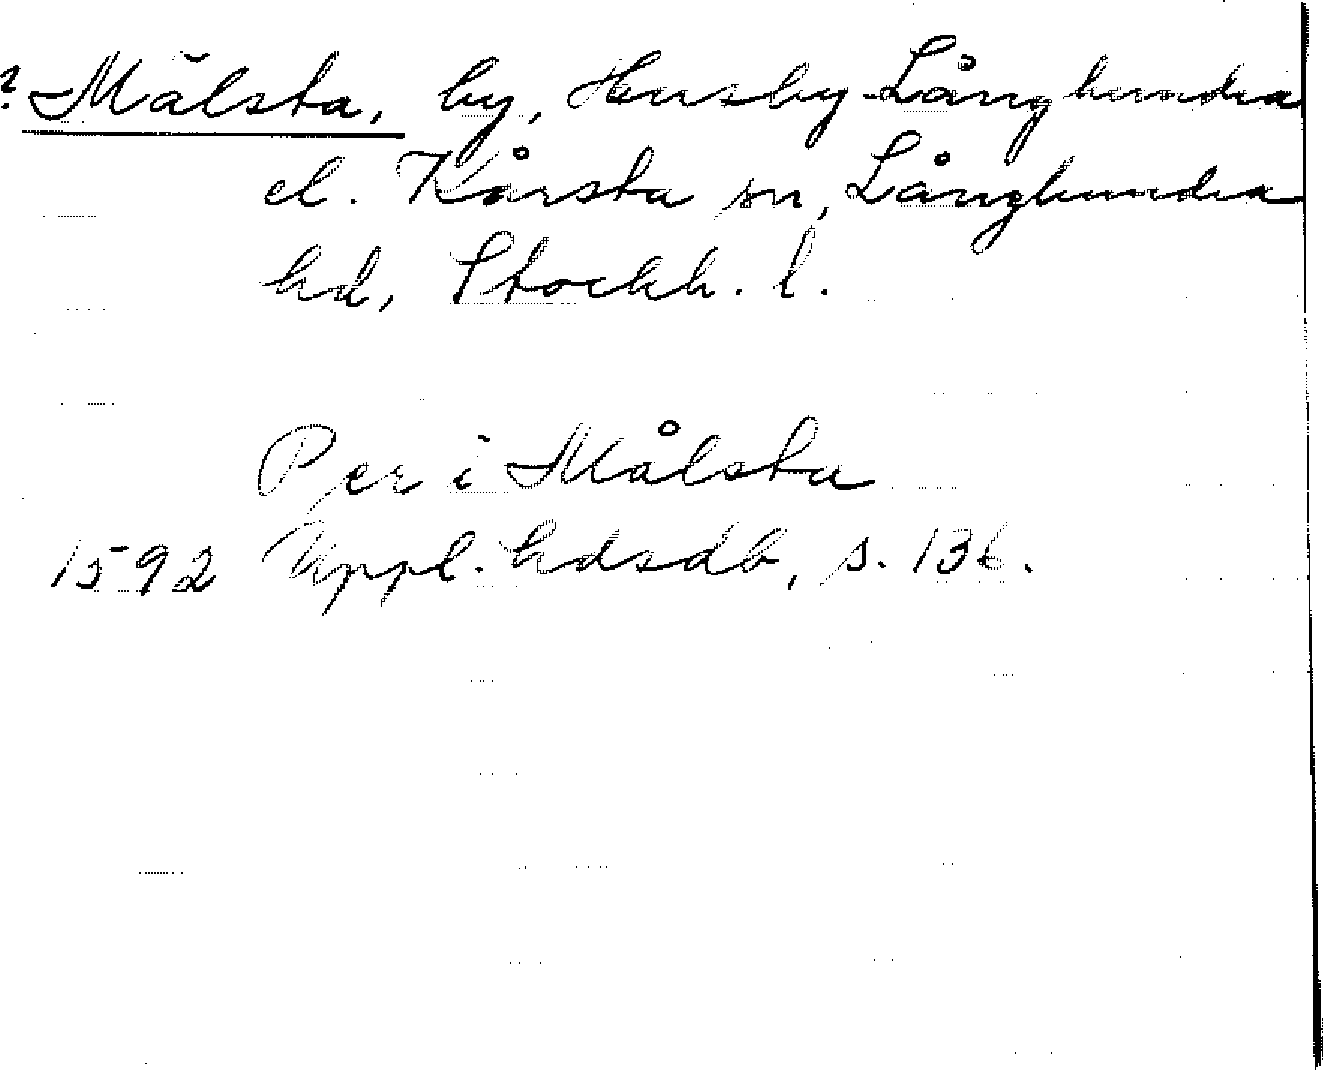 ? Målsta, by, Husby-Långhundra
el. Kårsta sn, Långhundra
hd, Stockh. l.
Per i Målsta
1592 Uppl. hdsdb, s. 136.